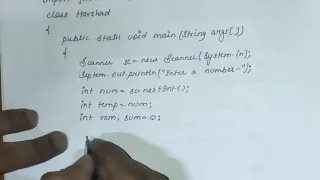 class Harshad
{
public static void main(String args[])
{
Scanner sc=new Scanner(System.in);
System.out.println("Enter a number-");
int num=sc.nextInt();
int temp=num;
int ram, sum=0;